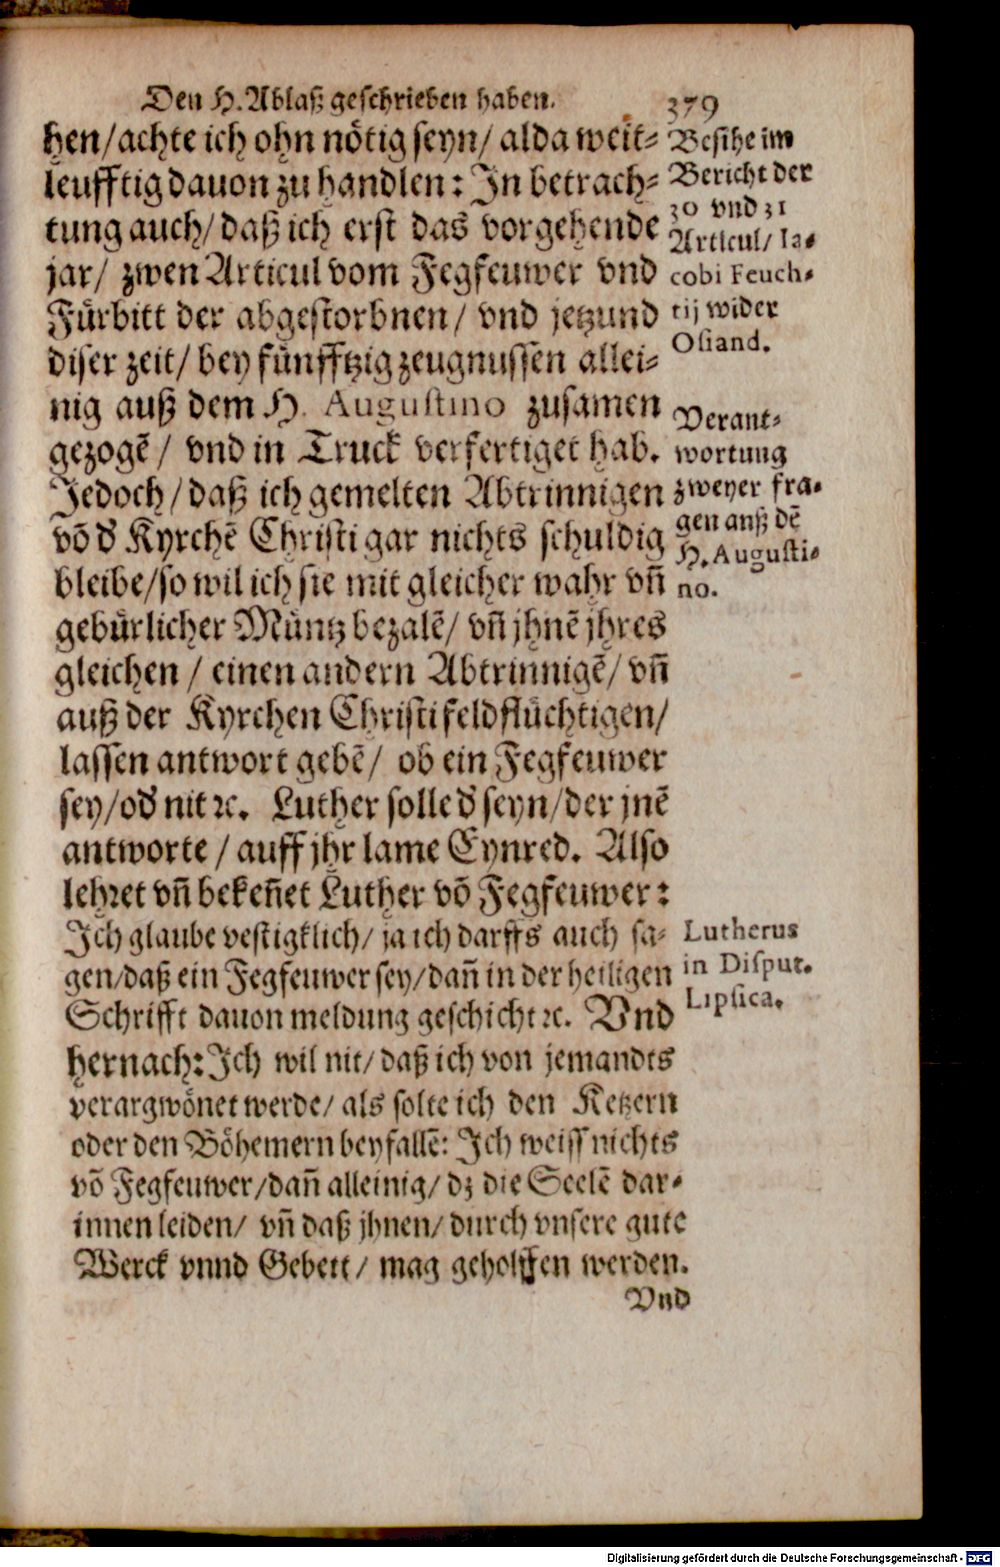 Den H. Ablaß geschrieben haben. 379
hen/achte ich ohn nötig seyn/ alda weit-
leufftig dauon zu handlen: In betrach-
tung auch/ daß ich erst das vorgehende
jar/ zwen Articul vom Fegfeuwer vnd
Fürbitt der abgestorbnen/ vnd jetzund
diser zeit/ bey fünfftzig zeugnussen allei-
nig auß dem H. Augustino zusamen
gezogẽ/ vnd in Truck verfertiget hab.
Jedoch/ daß ich gemelten Abtrinnigen
võ d' Kyrchẽ Christi gar nichts schuldig
bleibe/so wil ich sie mit gleicher wahr vñ
gebürlicher Müntz bezalẽ/ vñ jhnẽ jhres
gleichen/ einen andern Abtrinnigẽ/ vñ
auß der Kyrchen Christi feldflüchtigen/
lassen antwort gebẽ/ ob ein Fegfeuwer
sey/od' nit ꝛc. Luther solle d' seyn/der jnẽ
antworte/ auff jhr lame Eynred. Also
lehꝛet vñ bekeñet Luther võ Fegfeuwer:
Ich glaube vestigklich/ ja ich darffs auch sa-
gen/daß ein Fegfeuwer sey/dañ in der heiligen
Schrifft dauon meldung geschicht ꝛc. Vnd
hernach: Ich wil nit/ daß ich von jemandts
verargwönet werde/ als solte ich den Ketzern
oder den Böhemern beyfallẽ: Ich weiss nichts
võ Fegfeuwer/dañ alleinig/ dz die Seelẽ dar-
innen leiden/ vñ daß jhnen/ durch vnsere gute
Werck vnnd Gebett/ mag geholffen werden.
Vnd
Besihe im
Bericht der
30 vnd 31
Articul/ Ia-
cobi Feuch-
tij wider
Osiand.
Verant-
wortung
zweyer fra-
gen auß dẽ
H. Augusti-
no.
Lutherus
in Disput.
Lipsica.
Digitalisierung gefördert durch die Deutsche Forschungsgemeinschaft - DFG